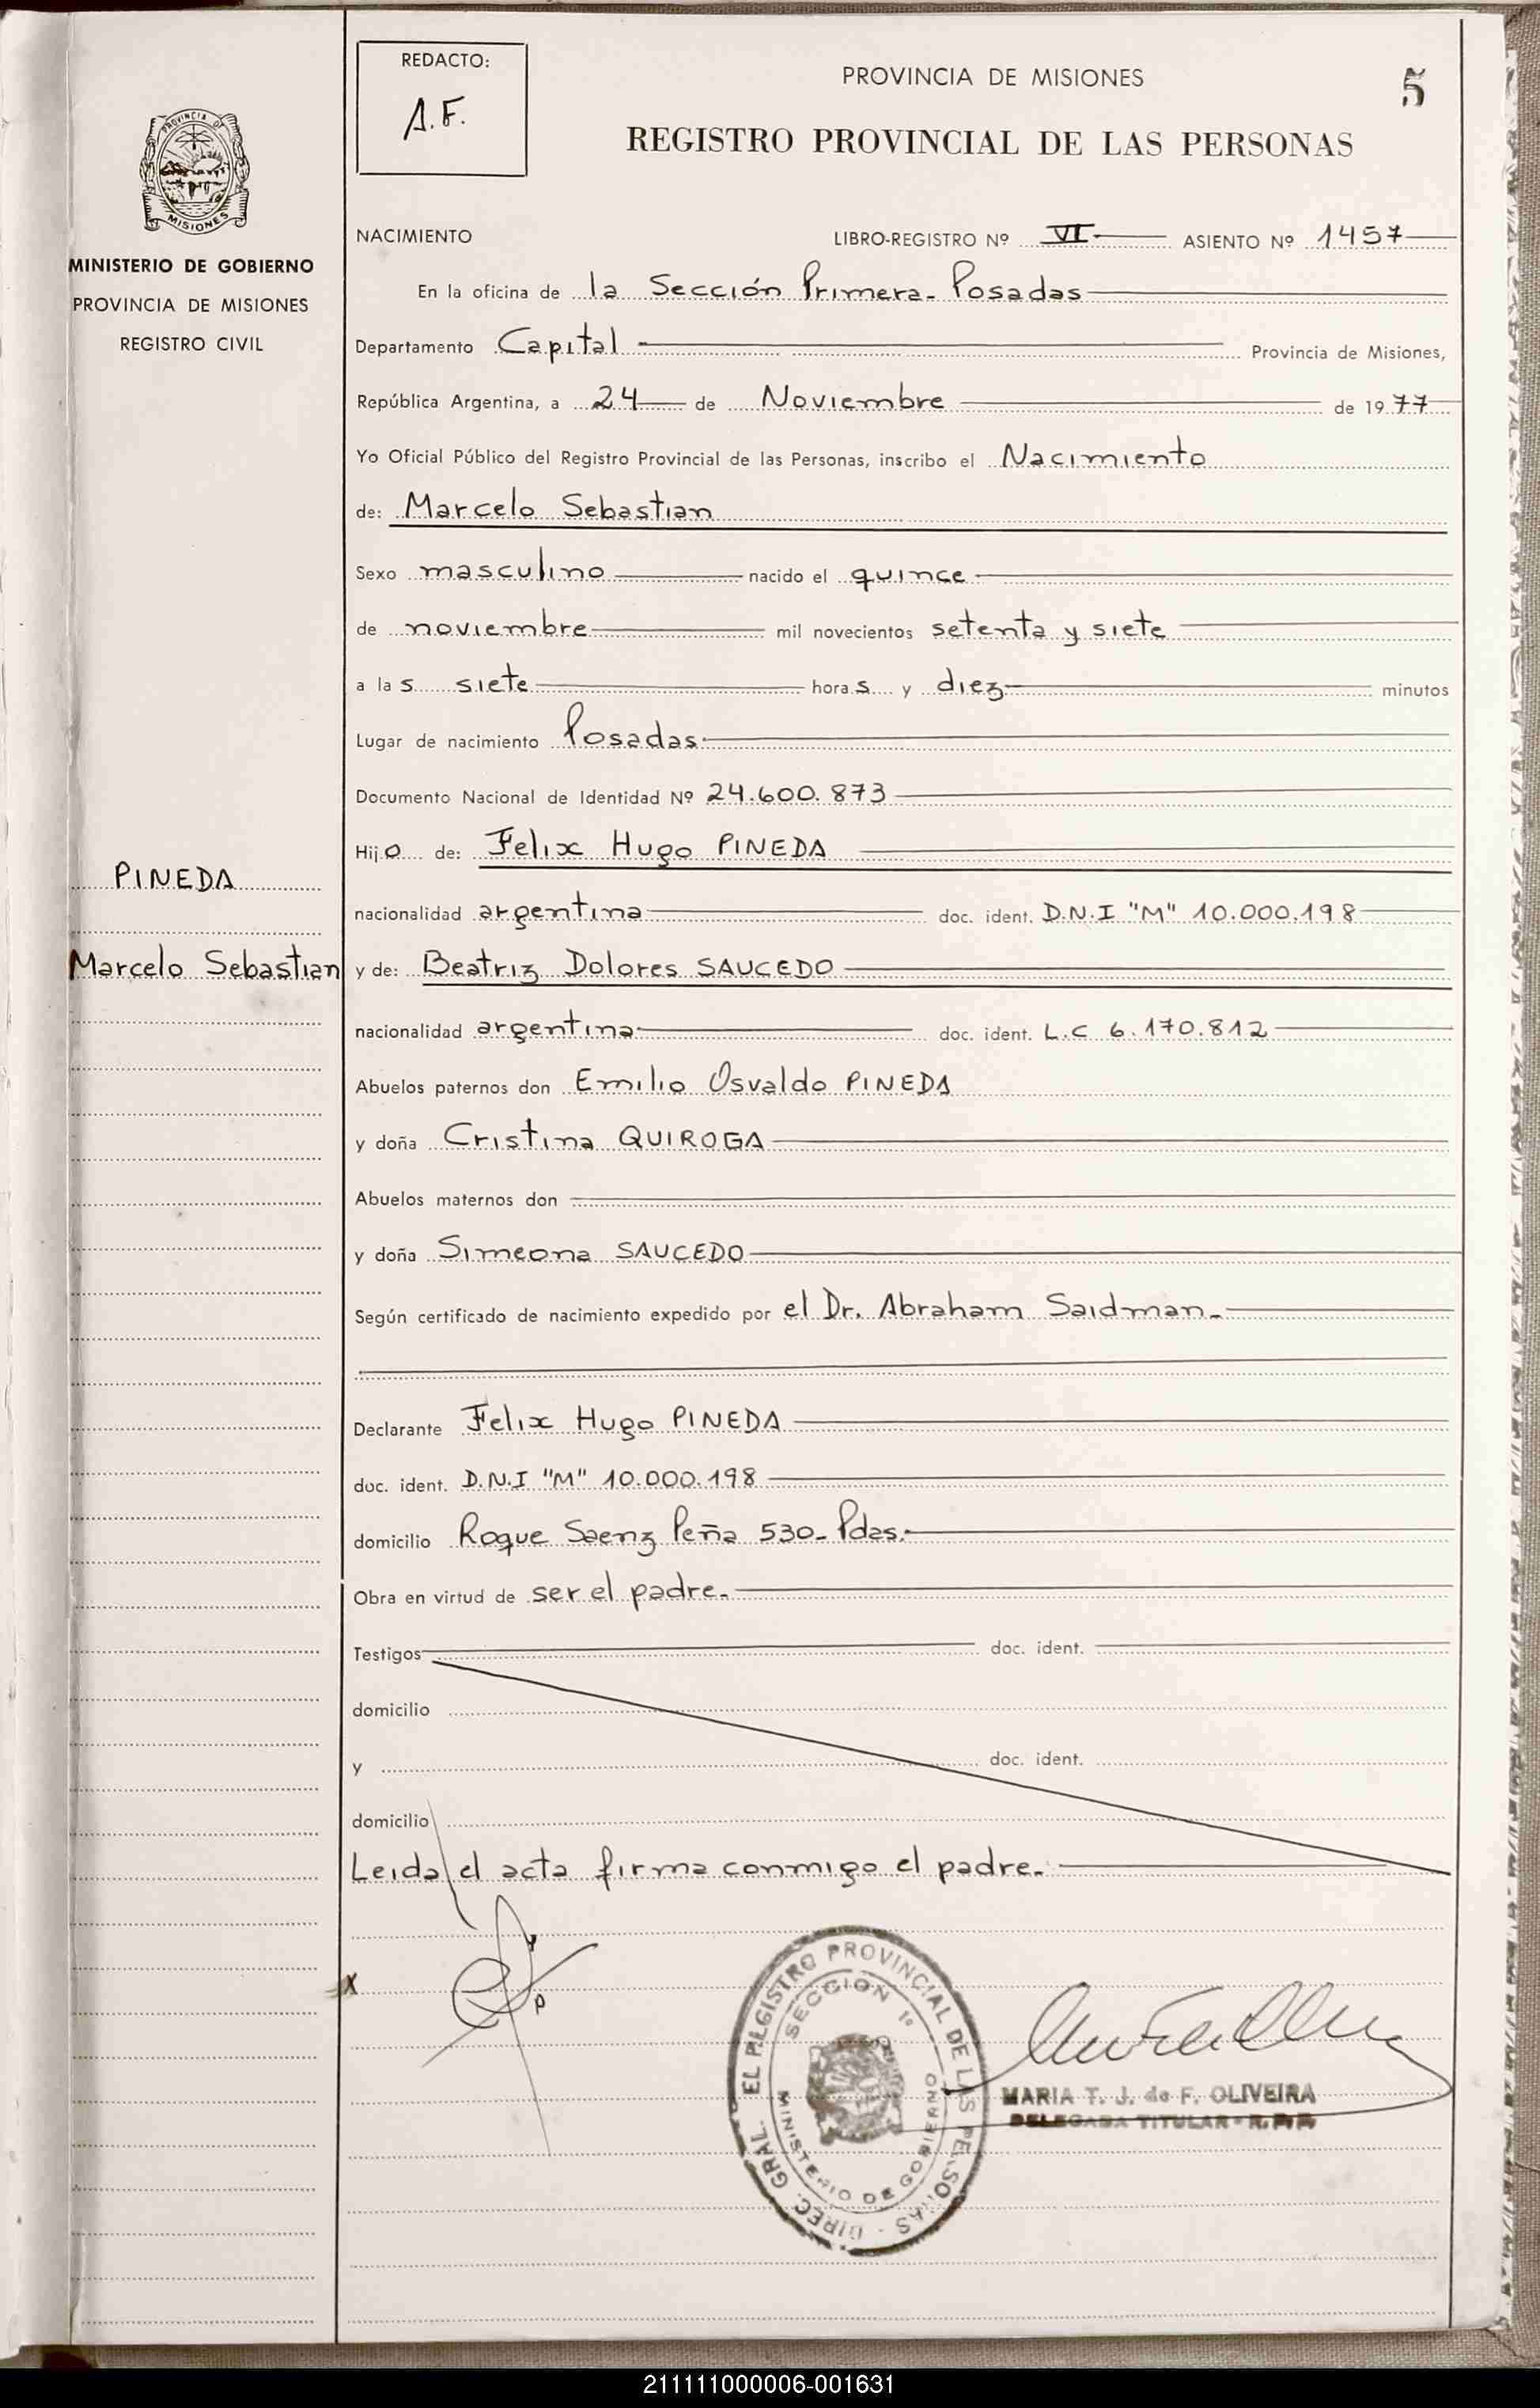 REDACTO:
A.F.
PROVINCIA DE MISIONES
5
REGISTRO PROVINCIAL DE LAS PERSONAS
PROVINCIA DE
MISIONES
MINISTERIO DE GOBIERNO
PROVINCIA DE MISIONES
REGISTRO CIVIL
NACIMIENTO LIBRO-REGISTRO Nº VI ASIENTO Nº 1457
En la oficina de la Sección Primera- Posadas
Departamento Capital Provincia de Misiones,
República Argentina, a 24 de Noviembre de 1977
Yo Oficial Público del Registro Provincial de las Personas, inscribo el Nacimiento
de: Marcelo Sebastian
Sexo masculino nacido el quince
de noviembre mil novecientos setenta y siete
a las siete horas y diez minutos
Lugar de nacimiento Posadas
Documento Nacional de Identidad Nº 24.600.873
Hijo de: Felix Hugo PINEDA
PINEDA
nacionalidad argentina doc. ident. D.N.I "M" 10.000.198
Marcelo Sebastian
y de: Beatriz Dolores SAUCEDO
nacionalidad argentina doc. ident. L.C 6.170.812
Abuelos paternos don Emilio Osvaldo PINEDA
y doña Cristina QUIROGA
Abuelos maternos don
y doña Simeona SAUCEDO
Según certificado de nacimiento expedido por el Dr. Abraham Saidman.-
Declarante Felix Hugo PINEDA
doc. ident. D.N.I "M" 10.000.198
domicilio Roque Saenz Peña 530- Pdas.
Obra en virtud de ser el padre.-
Testigos doc. ident.
domicilio
y doc. ident.
domicilio
Leida el acta firma conmigo el padre.-
x
DIREC. GRAL. EL REGISTRO PROVINCIAL DE LAS PERSONAS
SECCION 1ª
MINISTERIO DE GOBIERNO
MARIA T. J. de F. OLIVEIRA
DELEGADA TITULAR - R.P.P.
211111000006-001631